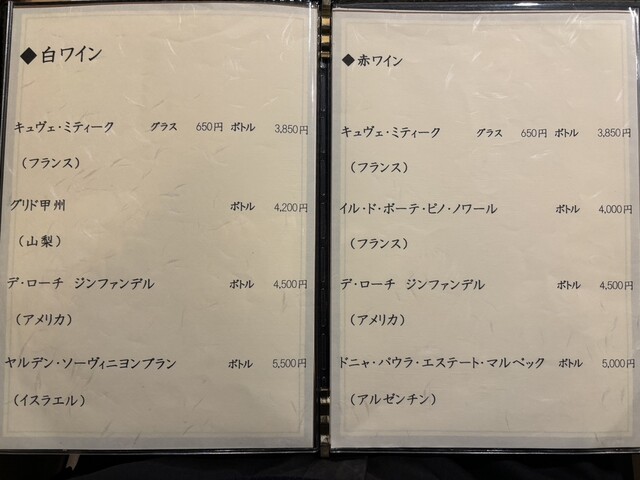 ◆白ワイン
キュヴェ・ミティーク グラス 650円 ボトル 3,850円
（フランス）
グリド甲州 ボトル 4,200円
（山梨）
デ・ローチ ジンファンデル ボトル 4,500円
（アメリカ）
ヤルデン・ソーヴィニヨンブラン ボトル 5,500円
（イスラエル）
◆赤ワイン
キュヴェ・ミティーク グラス 650円 ボトル 3,850円
（フランス）
イル・ド・ボーテ・ピノ・ノワール ボトル 4,000円
（フランス）
デ・ローチ ジンファンデル ボトル 4,500円
（アメリカ）
ドニャ・パウラ・エステート・マルベック ボトル 5,000円
（アルゼンチン）